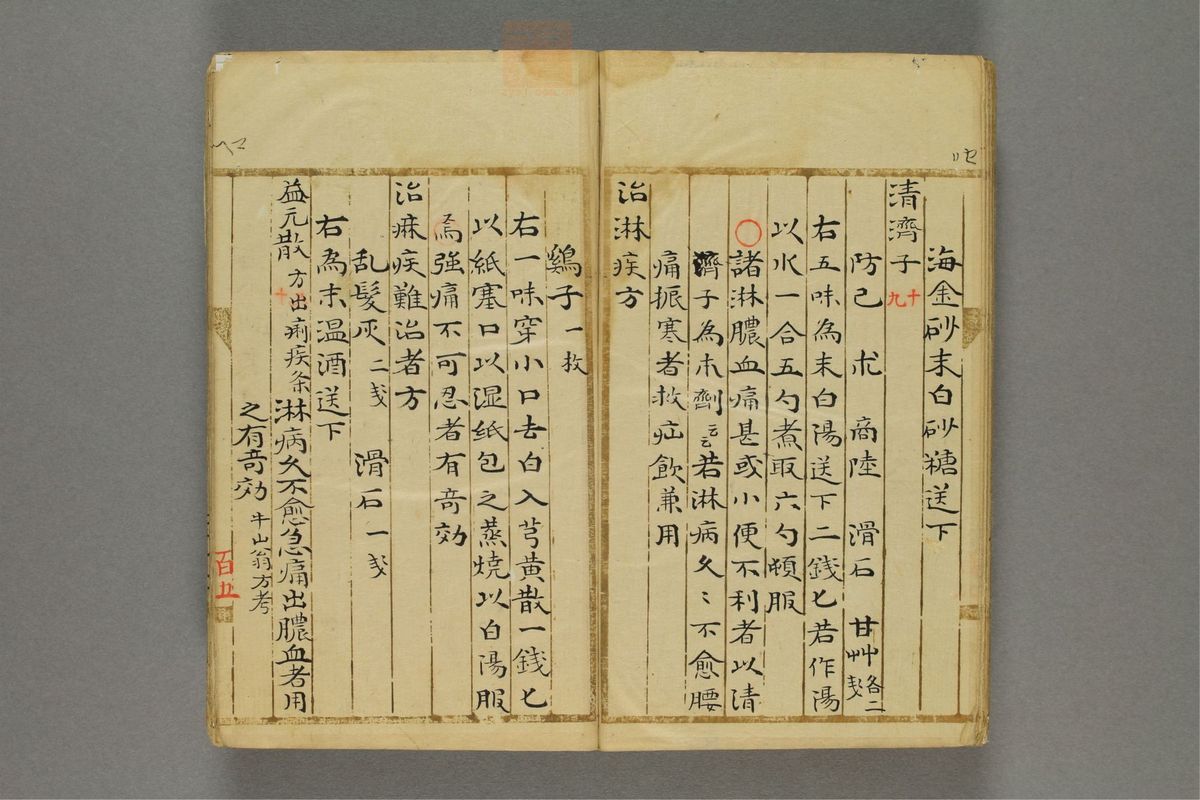 海金砂末白砂糖送下
清濟子 十九
防己 朮 商陸 滑石 甘艸各二戔
右五味為末白湯送下二錢匕若作湯
以水一合五勺煮取六勺頓服
諸淋膿血痛甚或小便不利者以清
濟子為末劑云云若淋病久〻不愈腰
痛振寒者救疝飲兼用
治淋疾方
鷄子一枚
右一味穿小口去白入芎黄散一錢匕
以紙塞口以湿纸包之蒸燒以白湯服
焉強痛不可忍者有竒効
治痳疾難治者方
乱髪灰二戔 滑石一戔
右為末温酒送下
益元散方出痢疾条淋病久不愈急痛出膿血者用
之有竒効 牛山翁方考
百五